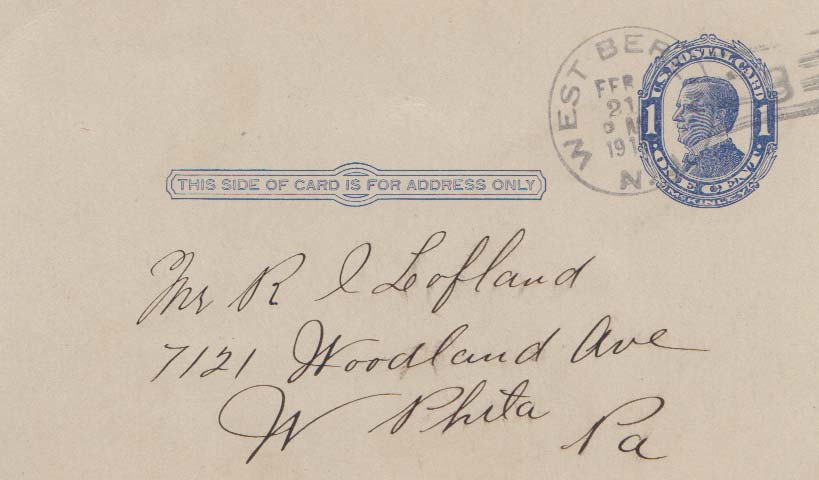 WEST BER
FEB
21
M
191
N.
U.S. POSTAL CARD
1 1
ONE CENT
McKINLEY
THIS SIDE OF CARD IS FOR ADDRESS ONLY
Mr R Lofland
7121 Woodland Ave
W Phila
Pa